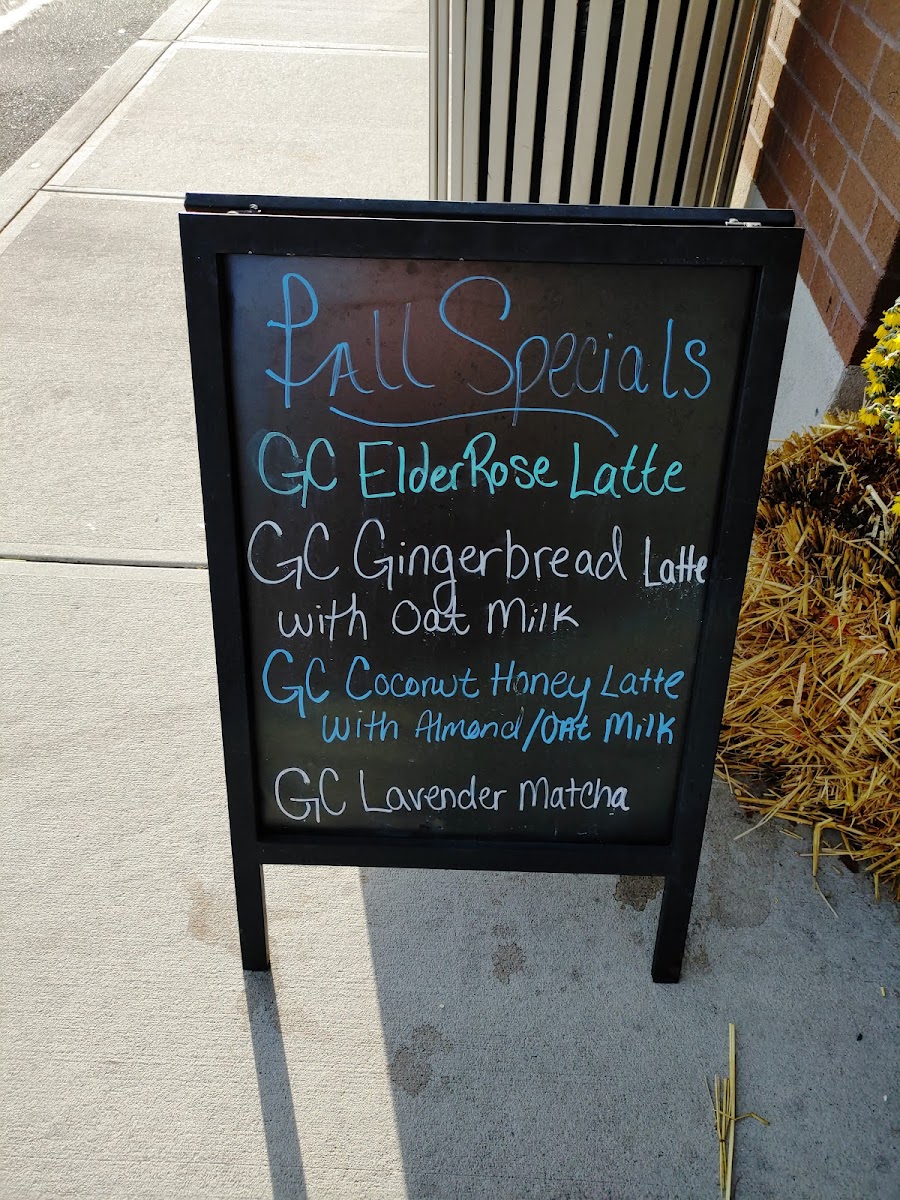 Fall Specials
GC ElderRose Latte
GC Gingerbread Latte
with Oat Milk
GC Coconut Honey Latte
with Almond/Oat Milk
GC Lavender Matcha